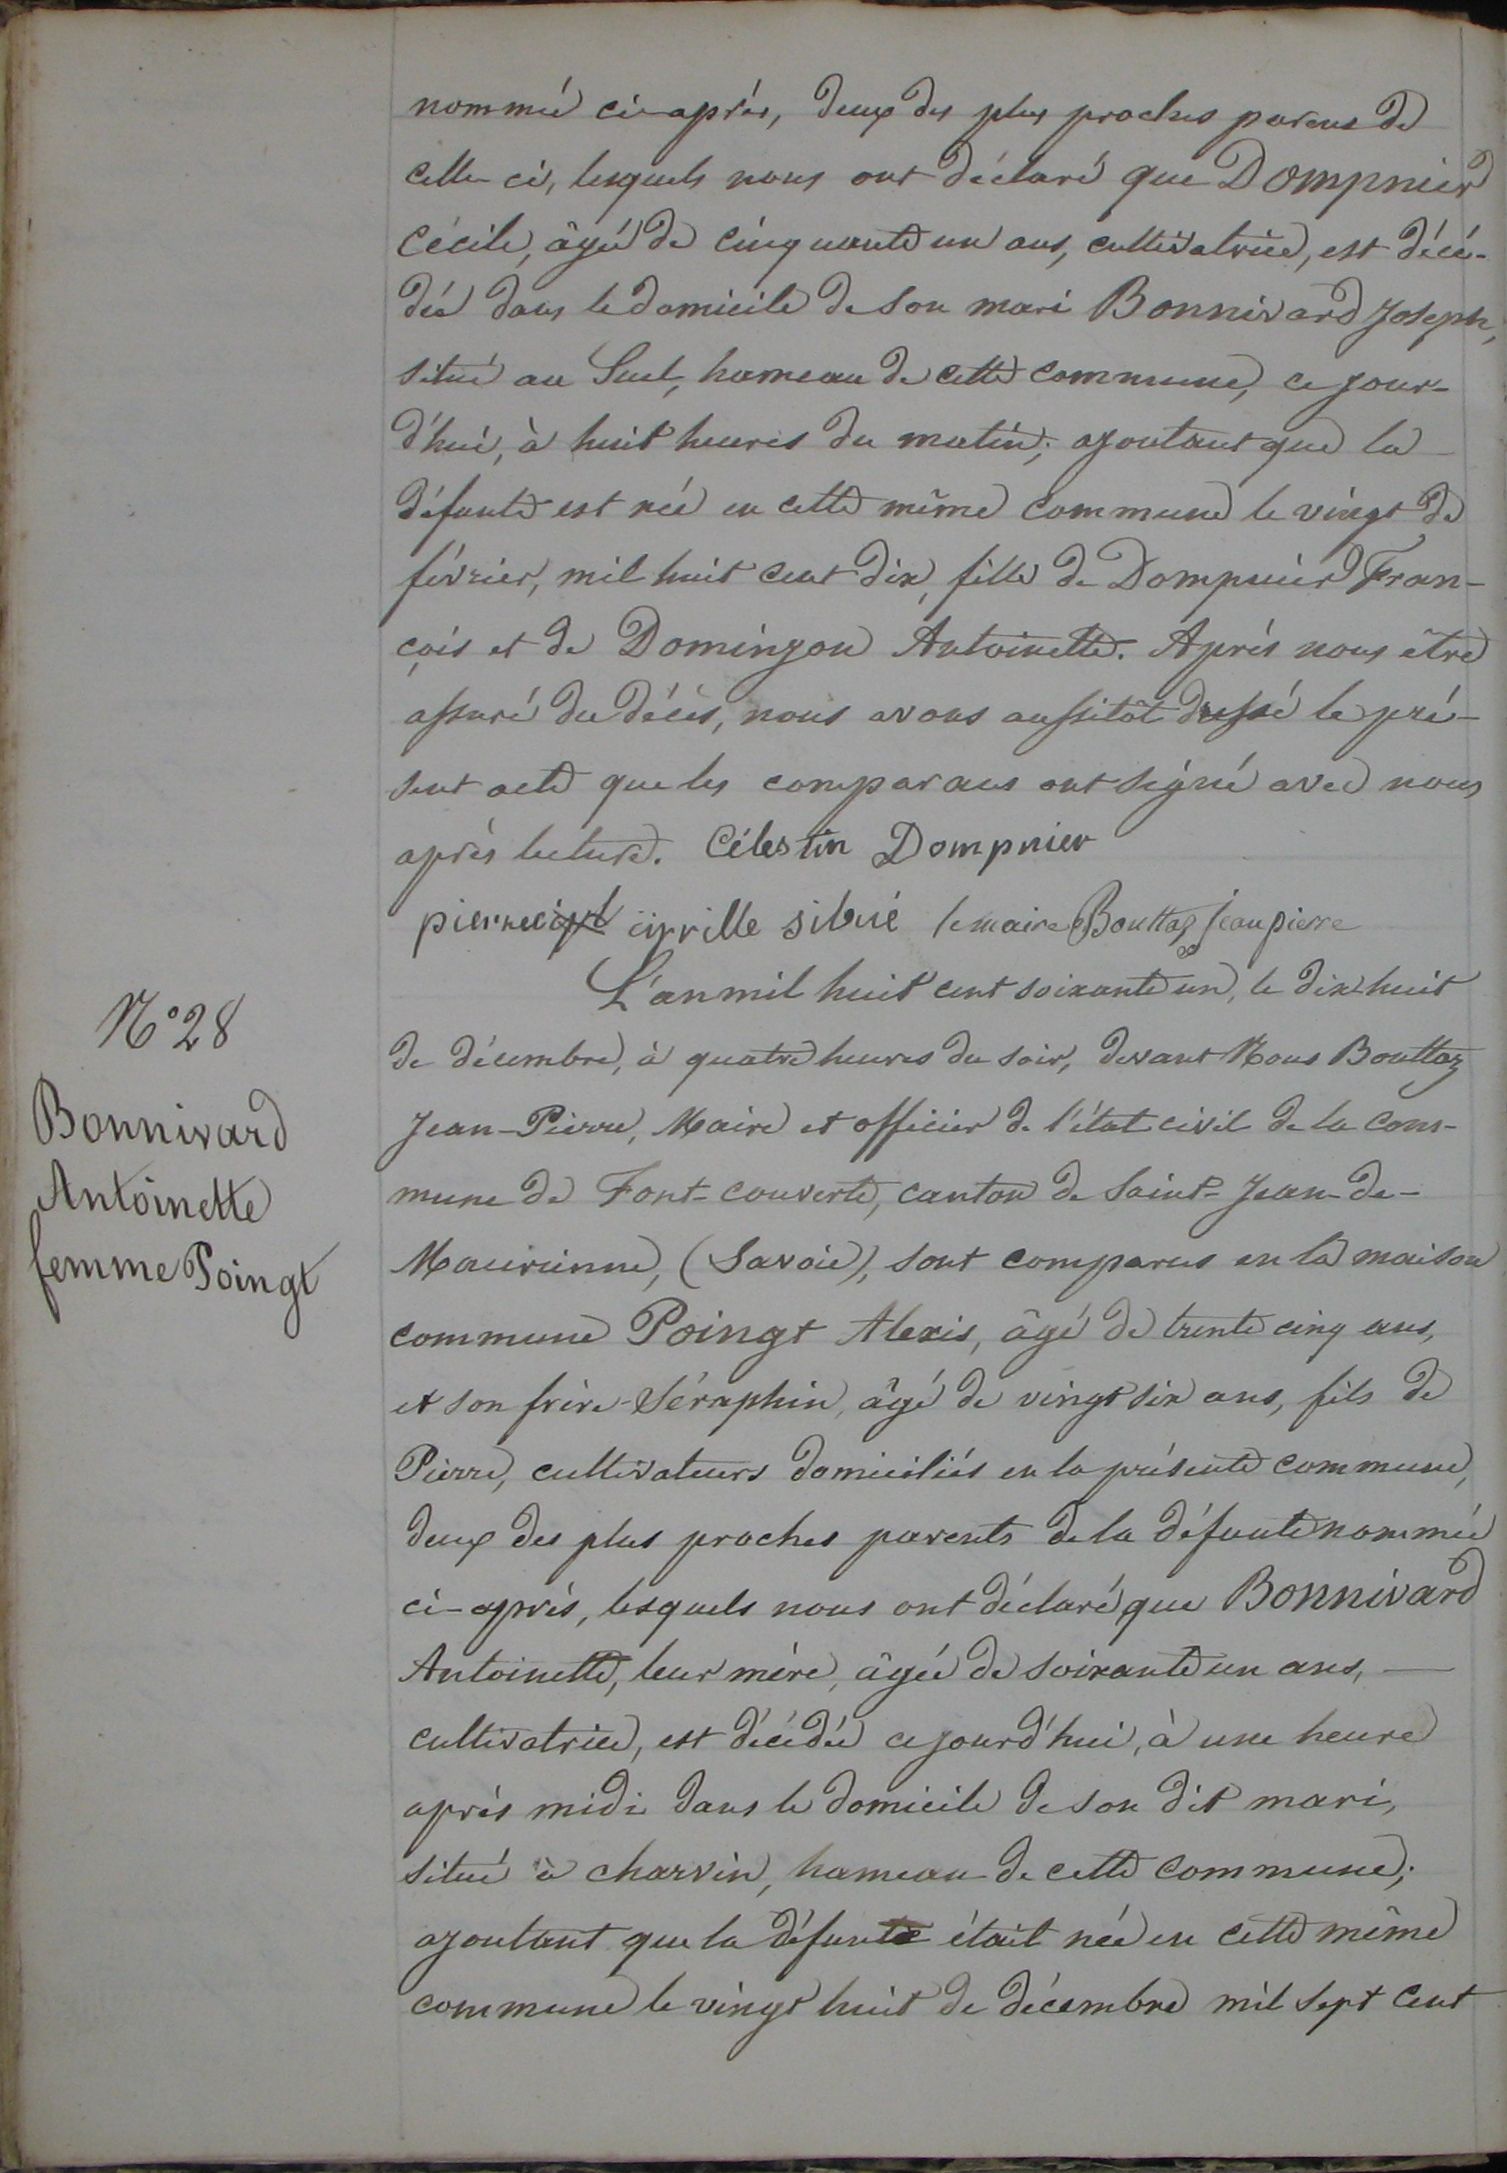 nommée ci-après, deux des plus proches parens de
celle-ci, lesquels nous ont déclaré que Dompnier
Cécile, âgée de cinquante un ans, cultivatrice, est décé-
dée dans le domicile de son mari Bonnivard Joseph,
situé au Suel, hameau de cette commune, ce jour-
d'hui, à huit heures du matin; ajoutant que la
défunte est née en cette même commune le vingt de
février, mil huit cent dix, fille de Dompnier Fran-
çois et de Domingon Antoinette. Après nous être
assuré du décès, nous avons aussitôt dressé le pré-
sent acte que les comparans ont signé avec nous
après lecture. Célestin Dompnier
pierre cirille sibué le maire Bouttaz jean pierre
L'an mil huit cent soixante un, le dix huit
de décembre, à quatre heures du soir, devant Nous Bouttaz
Jean-Pierre, Maire et officier de l'état civil de la com-
mune de Font-couverte, canton de Saint-Jean-de-
Maurienne, (Savoie), sont comparus en la maison
commune Poingt Alexis, âgé de trente cinq ans,
et son frère Séraphin, âgé de vingt six ans, fils de
Pierre, cultivateurs domiciliés en la présente commune,
deux des plus proches parents de la défunte nommée
ci-après, lesquels nous ont déclaré que Bonnivard
Antoinette, leur mère, âgée de soixante un ans, —
cultivatrice, est décédée ce jourd'hui, à une heure
après midi dans le domicile de son dit mari,
situé à charvin, hameau de cette commune;
ajoutant que la défunte était née en cette même
commune le vingt huit de décembre mil sept cent
N° 28
Bonnivard
Antoinette
femme Poingt